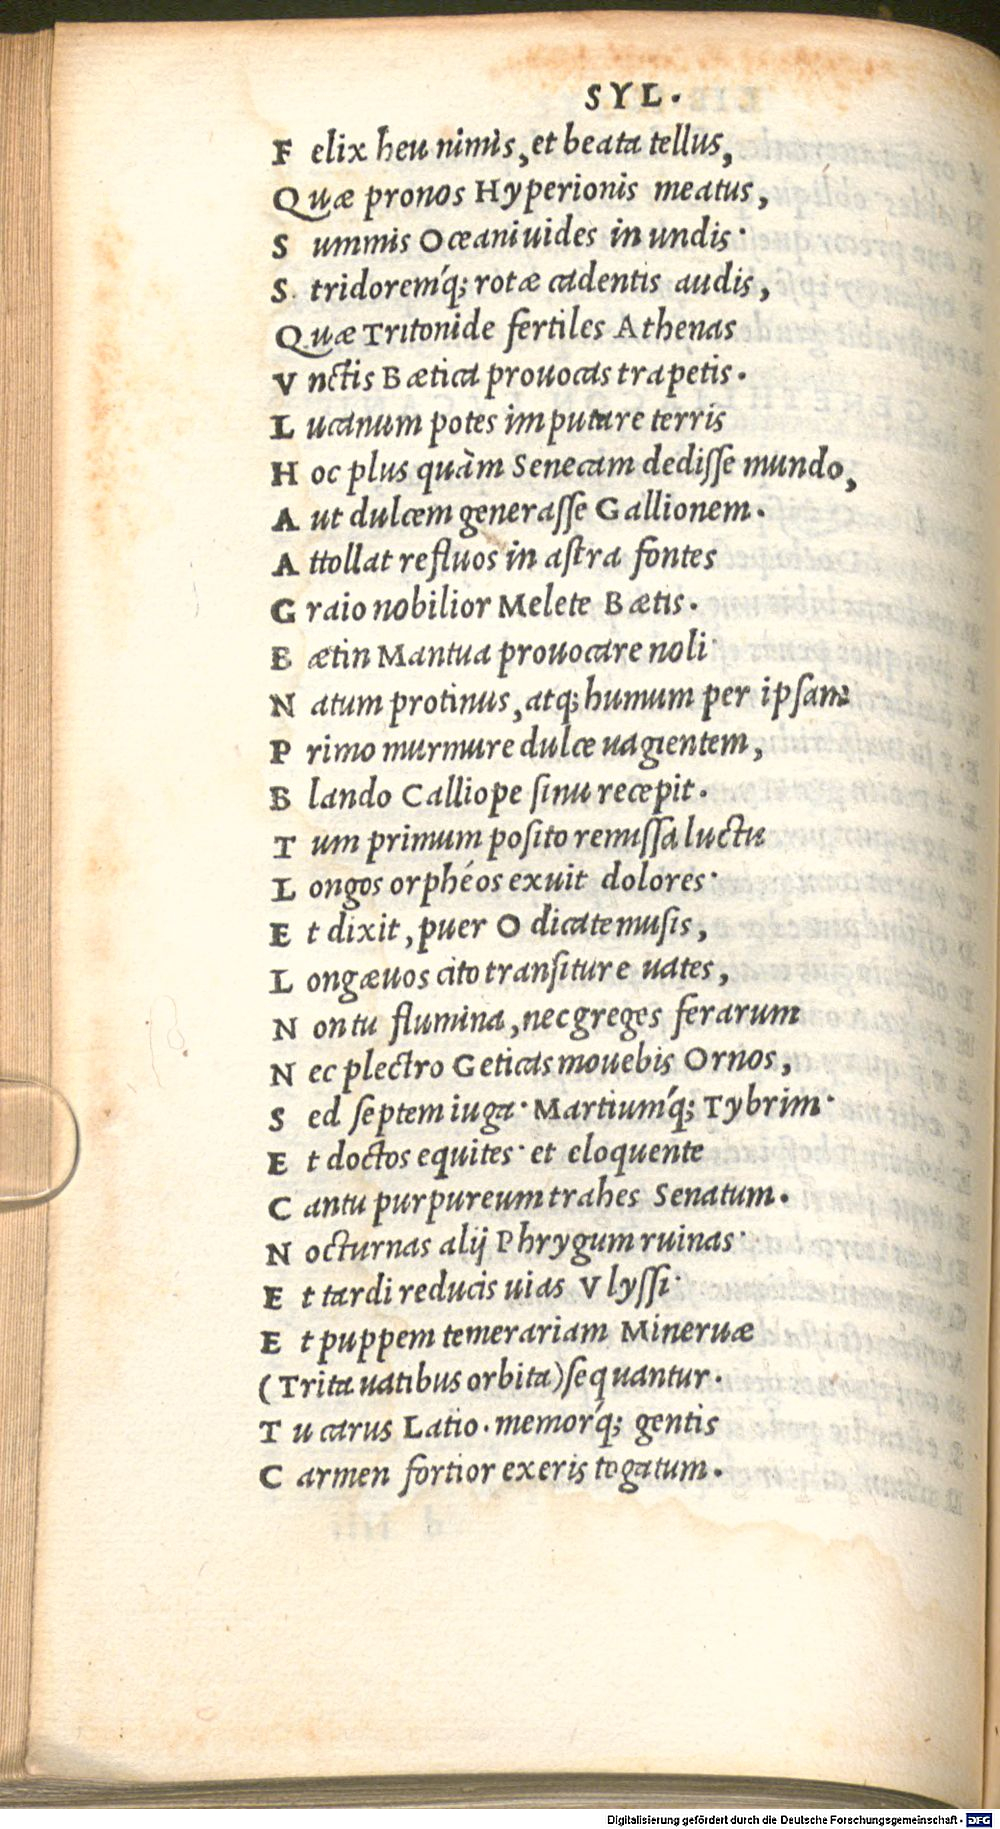 SYL.
F elix heu nimis, et beata tellus,
Quæ pronos Hyperionis meatus,
S ummis Oceani uides in undis·
S tridoremq́; rotæ cadentis audis,
Quæ Tritonide fertiles Athenas
V nctis Bætica prouocas trapetis.
L ucanum potes imputare terris
H oc plus quàm Senecam dedisse mundo,
A ut dulcem generasse Gallionem.
A ttollat refluos in astra fontes
G raio nobilior Melete Bætis.
B ætin Mantua prouocare noli·
N atum protinus, atq; humum per ipsam
P rimo murmure dulce uagientem,
B lando Calliope sinu recepit.
T um primum posito remissa luctu
L ongos orphéos exuit dolores·
E t dixit, puer O dicate musis,
L ongæuos cito transiture uates,
N on tu flumina, nec greges ferarum
N ec plectro Geticas mouebis Ornos,
S ed septem iuga· Martiumq́; Tybrim·
E t doctos equites· et eloquente
C antu purpureum trahes Senatum.
N octurnas alij Phrygum ruinas·
E t tardi reducis uias Vlyssi·
E t puppem temerariam Mineruæ
(Trita uatibus orbita) sequantur.
T u carus Latio. memorq́; gentis
C armen fortior exeris togatum.
Digitalisierung gefördert durch die Deutsche Forschungsgemeinschaft - DFG